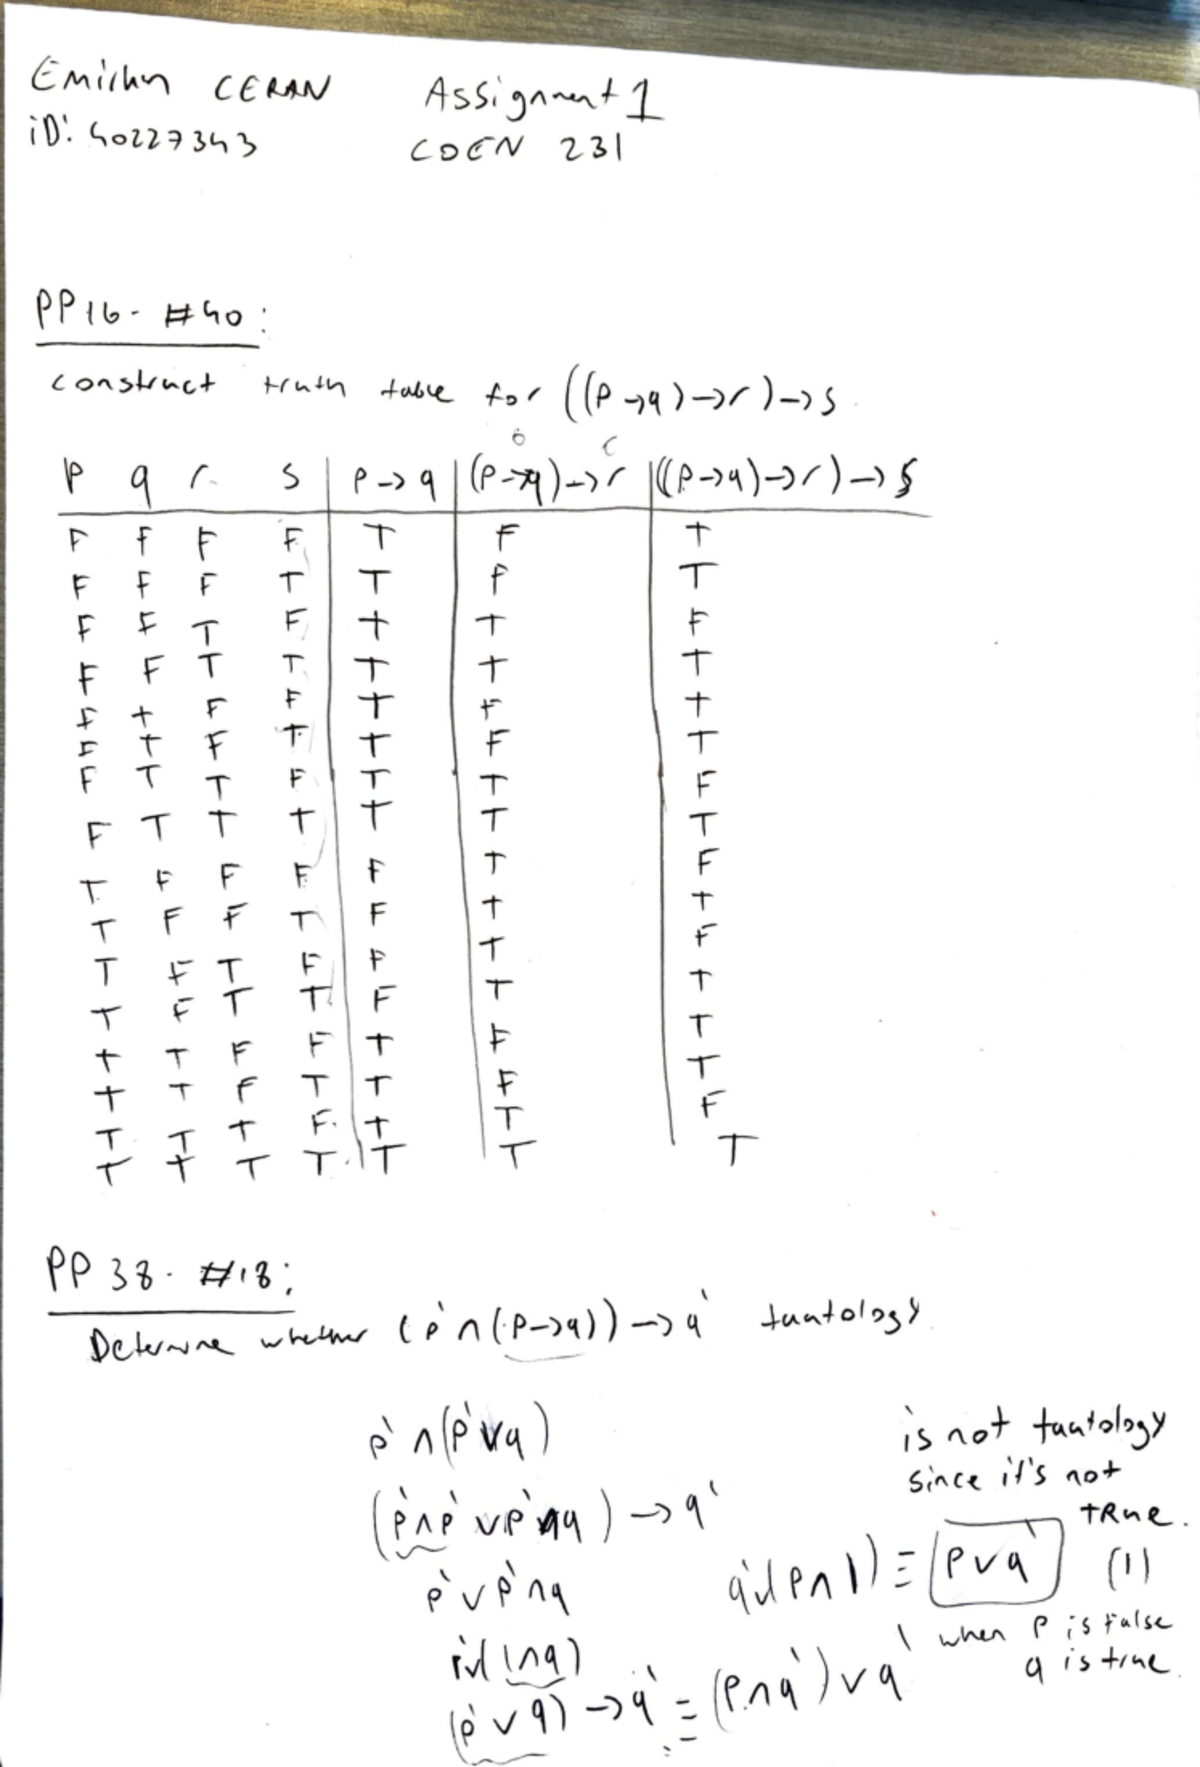 Emirhn CERAN Assignment 1
iD: 40227343 COEN 231
PP16- #40:
construct truth table for ((P→q)→r)→s
P q r s | P→q | (P→q)→r | ((P→q)→r)→s
F F F F T F T
F F F T T F T
F F T F T T F
F F T T T T T
F T F F T F T
F T F T T F T
F T T F T T F
F T T T T T T
T F F F F T F
T F F T F T T
T F T F F T F
T F T T F T T
T T F F T F T
T T F T T F T
T T T F T T F
T T T T T T T
PP 38- #18:
Determine whether (p'∧(P→q))→q' tautology
p'∧(p'∨q)
(p'∧p' ∨ p'∧q)→q'
p'∨p'∧q
(p'∨q)→q' ≡ (P∧q')∨q'
q'∨(P∧1) ≡ P∨q' (1)
is not tautology
since it's not
TRue.
when P is false
q is true.